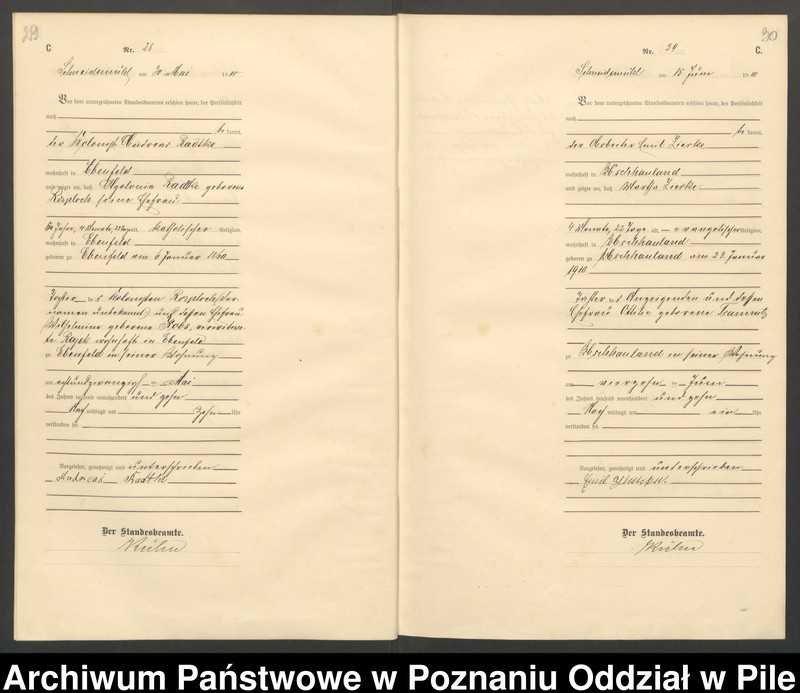 29
C
Nr. 28
Schneidemühl am 30 Mai 1910
Vor dem unterzeichneten Standesbeamten erschien heute, der Persönlichkeit
nach
be kannt,
der Kolonist Andreas Radtke
wohnhaft in Ebenfeld
und zeigte an, daß Apolonia Radtke geborene
seine Ehefrau
4 Monate, alt, katholischer Religion,
wohnhaft in Ebenfeld
geboren zu Ebenfeld am 6 Januar 1860
Tochter des Kolonisten
namen unbekannt) und dessen Ehefrau
Wilhelmine geborene
te wohnhaft in Ebenfeld
zu Ebenfeld in seiner Wohnung
am achtundzwanzigsten Mai
des Jahres tausend neunhundert und zehn
Nach mittags um zehn Uhr
verstorben sei.
Vorgelesen, genehmigt und unterschrieben
Andreas Radtke
Der Standesbeamte.
30
Nr. 29
C.
Schneidemühl am 15 Juni 1910
Vor dem unterzeichneten Standesbeamten erschien heute, der Persönlichkeit
nach
be kannt,
der Arbeiter Emil Zierke
wohnhaft in Uschhauland
und zeigte an, daß Martha Zierke
4 Monate, 22 Tage alt, evangelischer Religion,
wohnhaft in Uschhauland
geboren zu Uschhauland am 23 Januar
1910
Tochter des Anzeigenden und dessen
Ehefrau Ottilie geborene
zu Uschhauland in seiner Wohnung
am vierzehn ten Juni
des Jahres tausend neunhundert und zehn
Nach mittags um ein Uhr
verstorben sei.
Vorgelesen, genehmigt und unterschrieben
Emil
Der Standesbeamte.
Archiwum Państwowe w Poznaniu Oddział w Pile